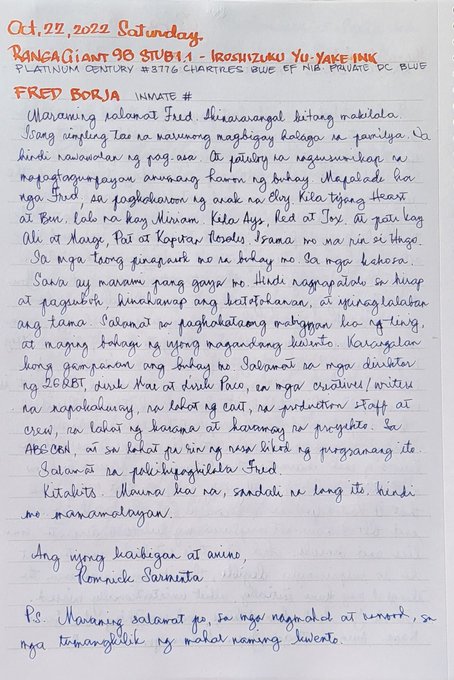 Oct. 22, 2022 Saturday.
RANGA GIANT 9B STUB 1.1 - IROSHIZUKU YU-YAKE INK
PLATINUM CENTURY #3776 CHARTRES BLUE EF NIB. PRIVATE DC BLUE
FRED BORJA INMATE #
Maraming salamat Fred. Ikinararangal kitang makilala.
Isang simpleng tao na marunong magbigay halaga sa pamilya. Na
hindi nawawalan ng pag-asa. At patuloy na nagsusumikap na
mapagtagumpayan anumang hamon ng buhay. Mapalad ka
nga Fred, sa pagkakaroon ng anak na Elvy. Kila tiyang Heart
at Ben, lalo na kay Miriam. Kila Ays, Red at Jox. At pati kay
Ali at Marge, Pat at Kapitan Rosales. Isama mo na rin si Hugo.
Sa mga taong pinapasok mo sa buhay mo. Sa mga kakosa.
Sana ay marami pang gaya mo. Hindi nagpatalo sa hirap
at pagsubok, hinahanap ang katotohanan, at ipinaglalaban
ang tama. Salamat sa pagkakataong mabigyan ka ng tinig,
at maging bahagi ng iyong magandang kwento. Karangalan
kong gampanan ang buhay mo. Salamat sa mga direktor
ng 2G2BT, direk Mae at direk Paco, sa mga creatives/writers
na napakahusay, sa lahat ng cast, sa production staff at
crew, sa lahat ng kasama at karamay sa proyekto. Sa
ABS CBN, at sa lahat pa rin ng nasa likod ng programang ito.
Salamat sa pakikipagkilala Fred.
Kitakits. Mauna ka na, sandali na lang ito. hindi
mo mamamalayan.
Ang iyong kaibigan at amino,
Romnick Sarmenta
P.S. Maraming salamat po, sa mga nagmahal at nanood, sa
mga tumangkilik ng mahal naming kwento.